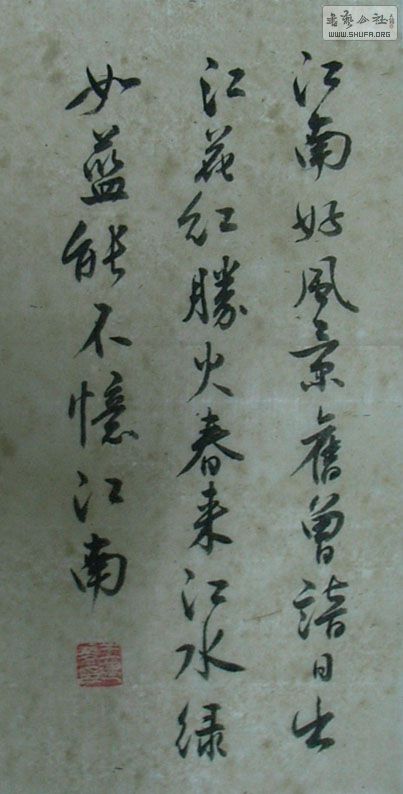 江南好風景舊曾諳日出
江花红勝火春来江水绿
如藍能不憶江南
書艺公社
WWW.SHUFA.ORG